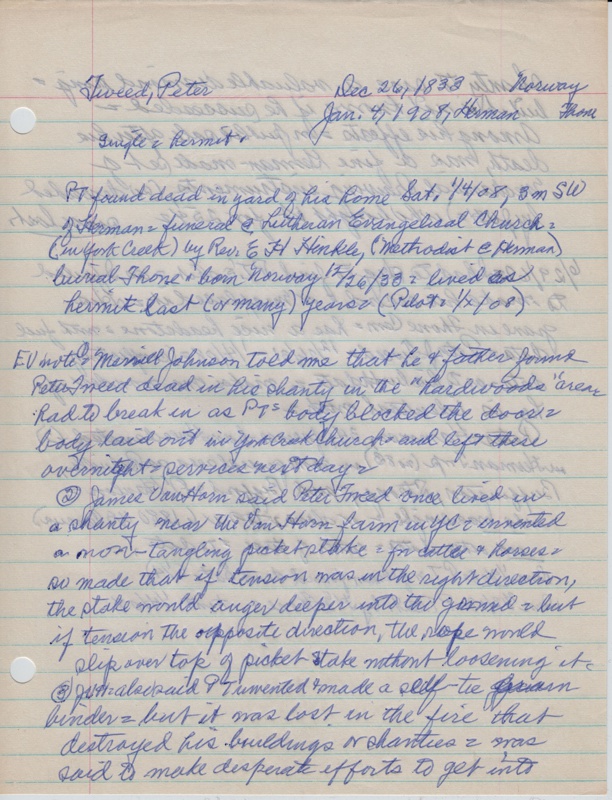 Tweed, Peter Dec 26, 1833 Norway
Jan. 4, 1908, Herman Thone
Single = hermit.
PT found dead in yard of his home Sat. 1/4/08, 3 m SW
of Herman = funeral @ Lutheran Evangelical Church =
(in York Creek) by Rev. E H Hinkley (Methodist @ Herman)
burial Thone = born Norway 12/26/33 = lived as
hermit last (or many) years = (Pilot = 1/x/08)
EV note = ① Merrill Johnson told me that he & father found
Peter Tweed dead in his shanty in the "hardwoods" area =
Had to break in as PT = body blocked the door =
body laid out in York Creek Church = and left there
overnight = services next day =
② James VanHorn said Peter Tweed once lived in
a shanty near the Van Horn farm in YC = invented
a non-tangling picket stake = for cattle & horses =
so made that if tension was in the right direction,
the stake would auger deeper into the ground = but
if tension the opposite direction, the rope would
slip over top of picket stake without loosening it =
③ JVH = also said PT invented & made a self-tie grain
binder = but it was lost in the fire that
destroyed his buildings or shanties = was
said to make desperate efforts to get into